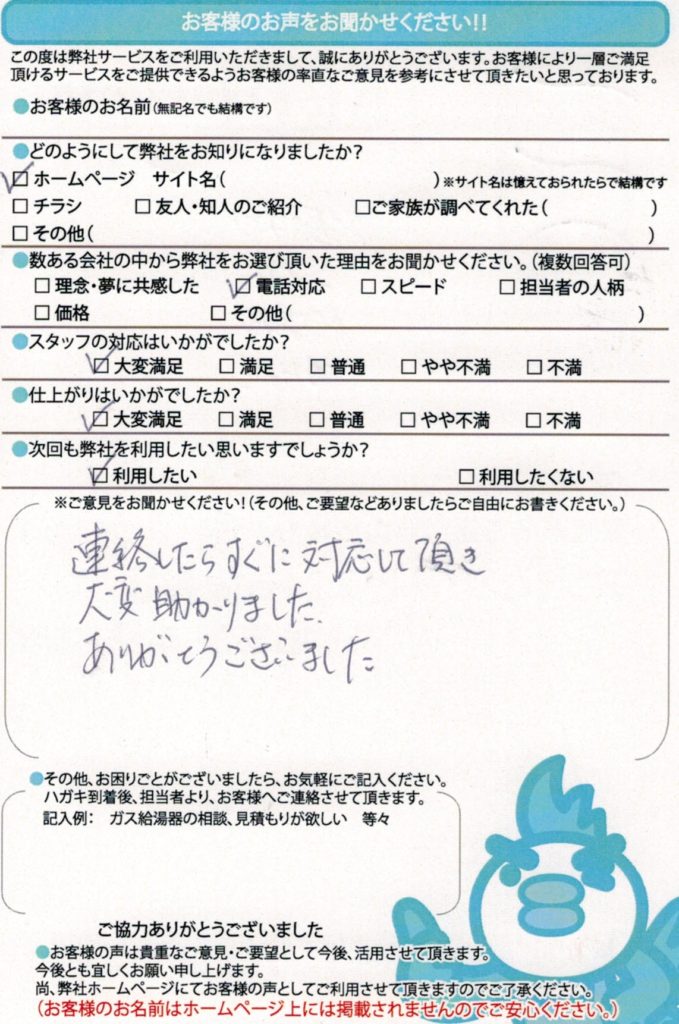 お客様のお声をお聞かせください!!
この度は弊社サービスをご利用いただきまして、誠にありがとうございます。お客様により一層ご満足
頂けるサービスをご提供できるようお客様の率直なご意見を参考にさせて頂きたいと思っております。
●お客様のお名前(無記名でも結構です)
●どのようにして弊社をお知りになりましたか?
☑ホームページ サイト名( )※サイト名は憶えておられたらで結構です
□チラシ □友人・知人のご紹介 □ご家族が調べてくれた( )
□その他( )
●数ある会社の中から弊社をお選び頂いた理由をお聞かせください。(複数回答可)
□理念・夢に共感した ☑電話対応 □スピード □担当者の人柄
□価格 □その他( )
●スタッフの対応はいかがでしたか?
☑大変満足 □満足 □普通 □やや不満 □不満
●仕上がりはいかがでしたか?
☑大変満足 □満足 □普通 □やや不満 □不満
●次回も弊社を利用したい思いますでしょうか?
☑利用したい □利用したくない
※ご意見をお聞かせください!(その他、ご要望などありましたらご自由にお書きください。)
連絡したらすぐに対応して頂き
大変助かりました.
ありがとうございました
●その他、お困りごとがございましたら、お気軽にご記入ください。
ハガキ到着後、担当者より、お客様へご連絡させて頂きます。
記入例: ガス給湯器の相談、見積もりが欲しい 等々
ご協力ありがとうございました
●お客様の声は貴重なご意見・ご要望として今後、活用させて頂きます。
今後とも宜しくお願い申し上げます。
尚、弊社ホームページにてお客様の声としてご利用させて頂きますのでご了承ください。
(お客様のお名前はホームページ上には掲載されませんのでご安心ください。)